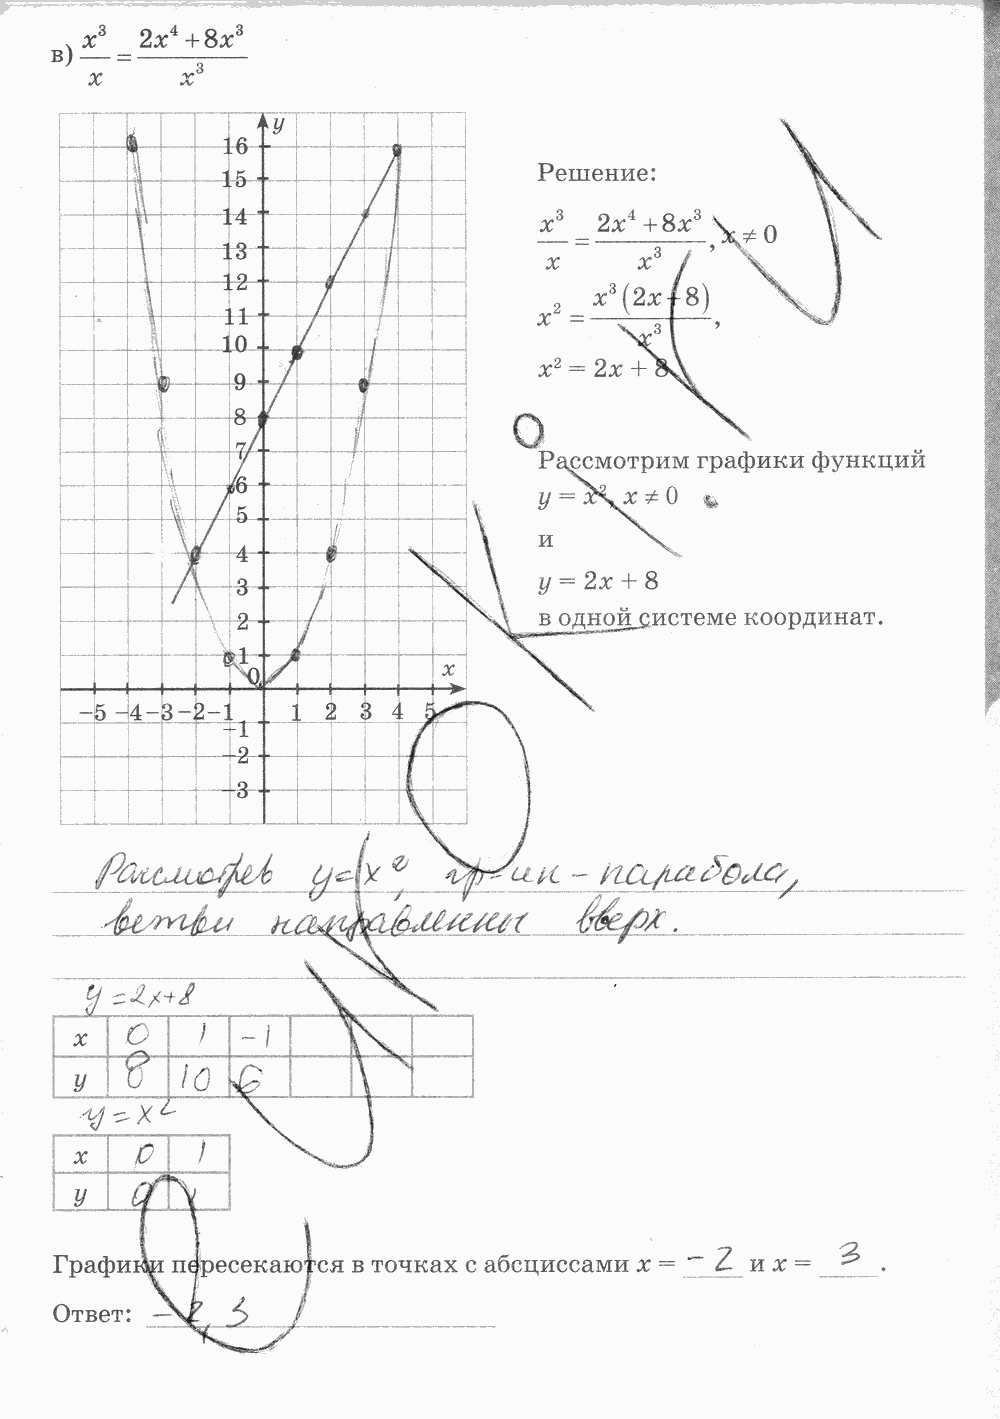 в) x³/x = (2x⁴ + 8x³)/x³
y
16
15
14
13
12
11
10
9
8
7
6
5
4
3
2
1
0
x
−5 −4 −3 −2 −1 1 2 3 4 5
−1
−2
−3
Решение:
x³/x = (2x⁴ + 8x³)/x³, x ≠ 0
x² = x³(2x + 8)/x³,
x² = 2x + 8
Рассмотрим графики функций
y = x², x ≠ 0
и
y = 2x + 8
в одной системе координат.
Рассмотрев y = x², гр-ик - парабола,
ветви направленны вверх.
y = 2x+8
x 0 1 −1
y 8 10 6
y = x²
x 0 1
y 0 1
Графики пересекаются в точках с абсциссами x = −2 и x = 3.
Ответ: −2, 3